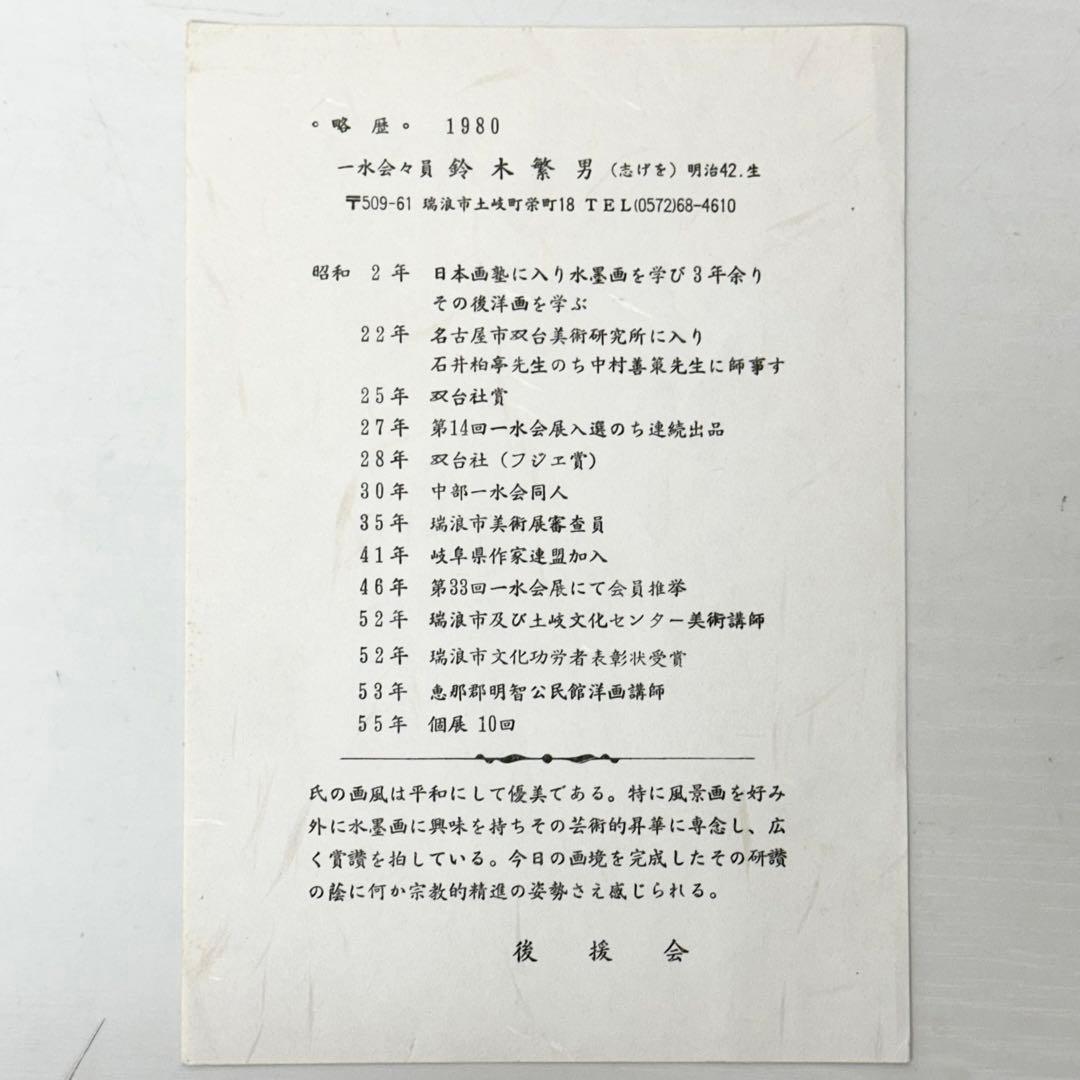 ○略 歴○ 1980
一水会々員 鈴木繁男 (志げを) 明治42.生
〒509-61 瑞浪市土岐町栄町18 TEL(0572)68-4610
昭和 2年 日本画塾に入り水墨画を学び3年余り
その後洋画を学ぶ
22年 名古屋市双台美術研究所に入り
石井柏亭先生のち中村善策先生に師事す
25年 双台社賞
27年 第14回一水会展入選のち連続出品
28年 双台社(フジエ賞)
30年 中部一水会同人
35年 瑞浪市美術展審査員
41年 岐阜県作家連盟加入
46年 第33回一水会展にて会員推挙
52年 瑞浪市及び土岐文化センター美術講師
52年 瑞浪市文化功労者表彰状受賞
53年 恵那郡明智公民館洋画講師
55年 個展 10回
氏の画風は平和にして優美である。特に風景画を好み
外に水墨画に興味を持ちその芸術的昇華に専念し、広
く賞讃を拍している。今日の画境を完成したその研讃
の蔭に何か宗教的精進の姿勢さえ感じられる。
後援会